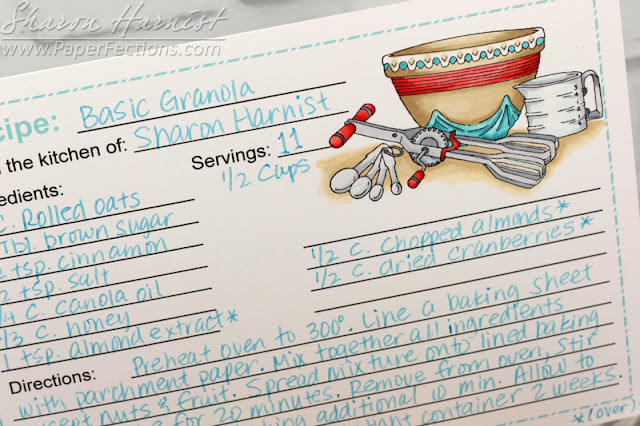 Sharon Harnist
www.PaperFections.com
cipe: Basic Granola
the kitchen of: Sharon Harnist
Servings: 11
1/2 cups
edients:
C. Rolled oats
Tbl. brown sugar
tsp. cinnamon
tsp. salt
C. canola oil
/3 C. honey
1 tsp. almond extract*
1/2 C. chopped almonds*
1/2 C. dried cranberries*
Directions: Preheat oven to 300°. Line a baking sheet
with parchment paper. Mix together all ingredients
cept nuts & fruit. Spread mixture onto lined baking
for 20 minutes. Remove from oven, stir
king additional 10 min. Allow to
container 2 weeks.
*(over)